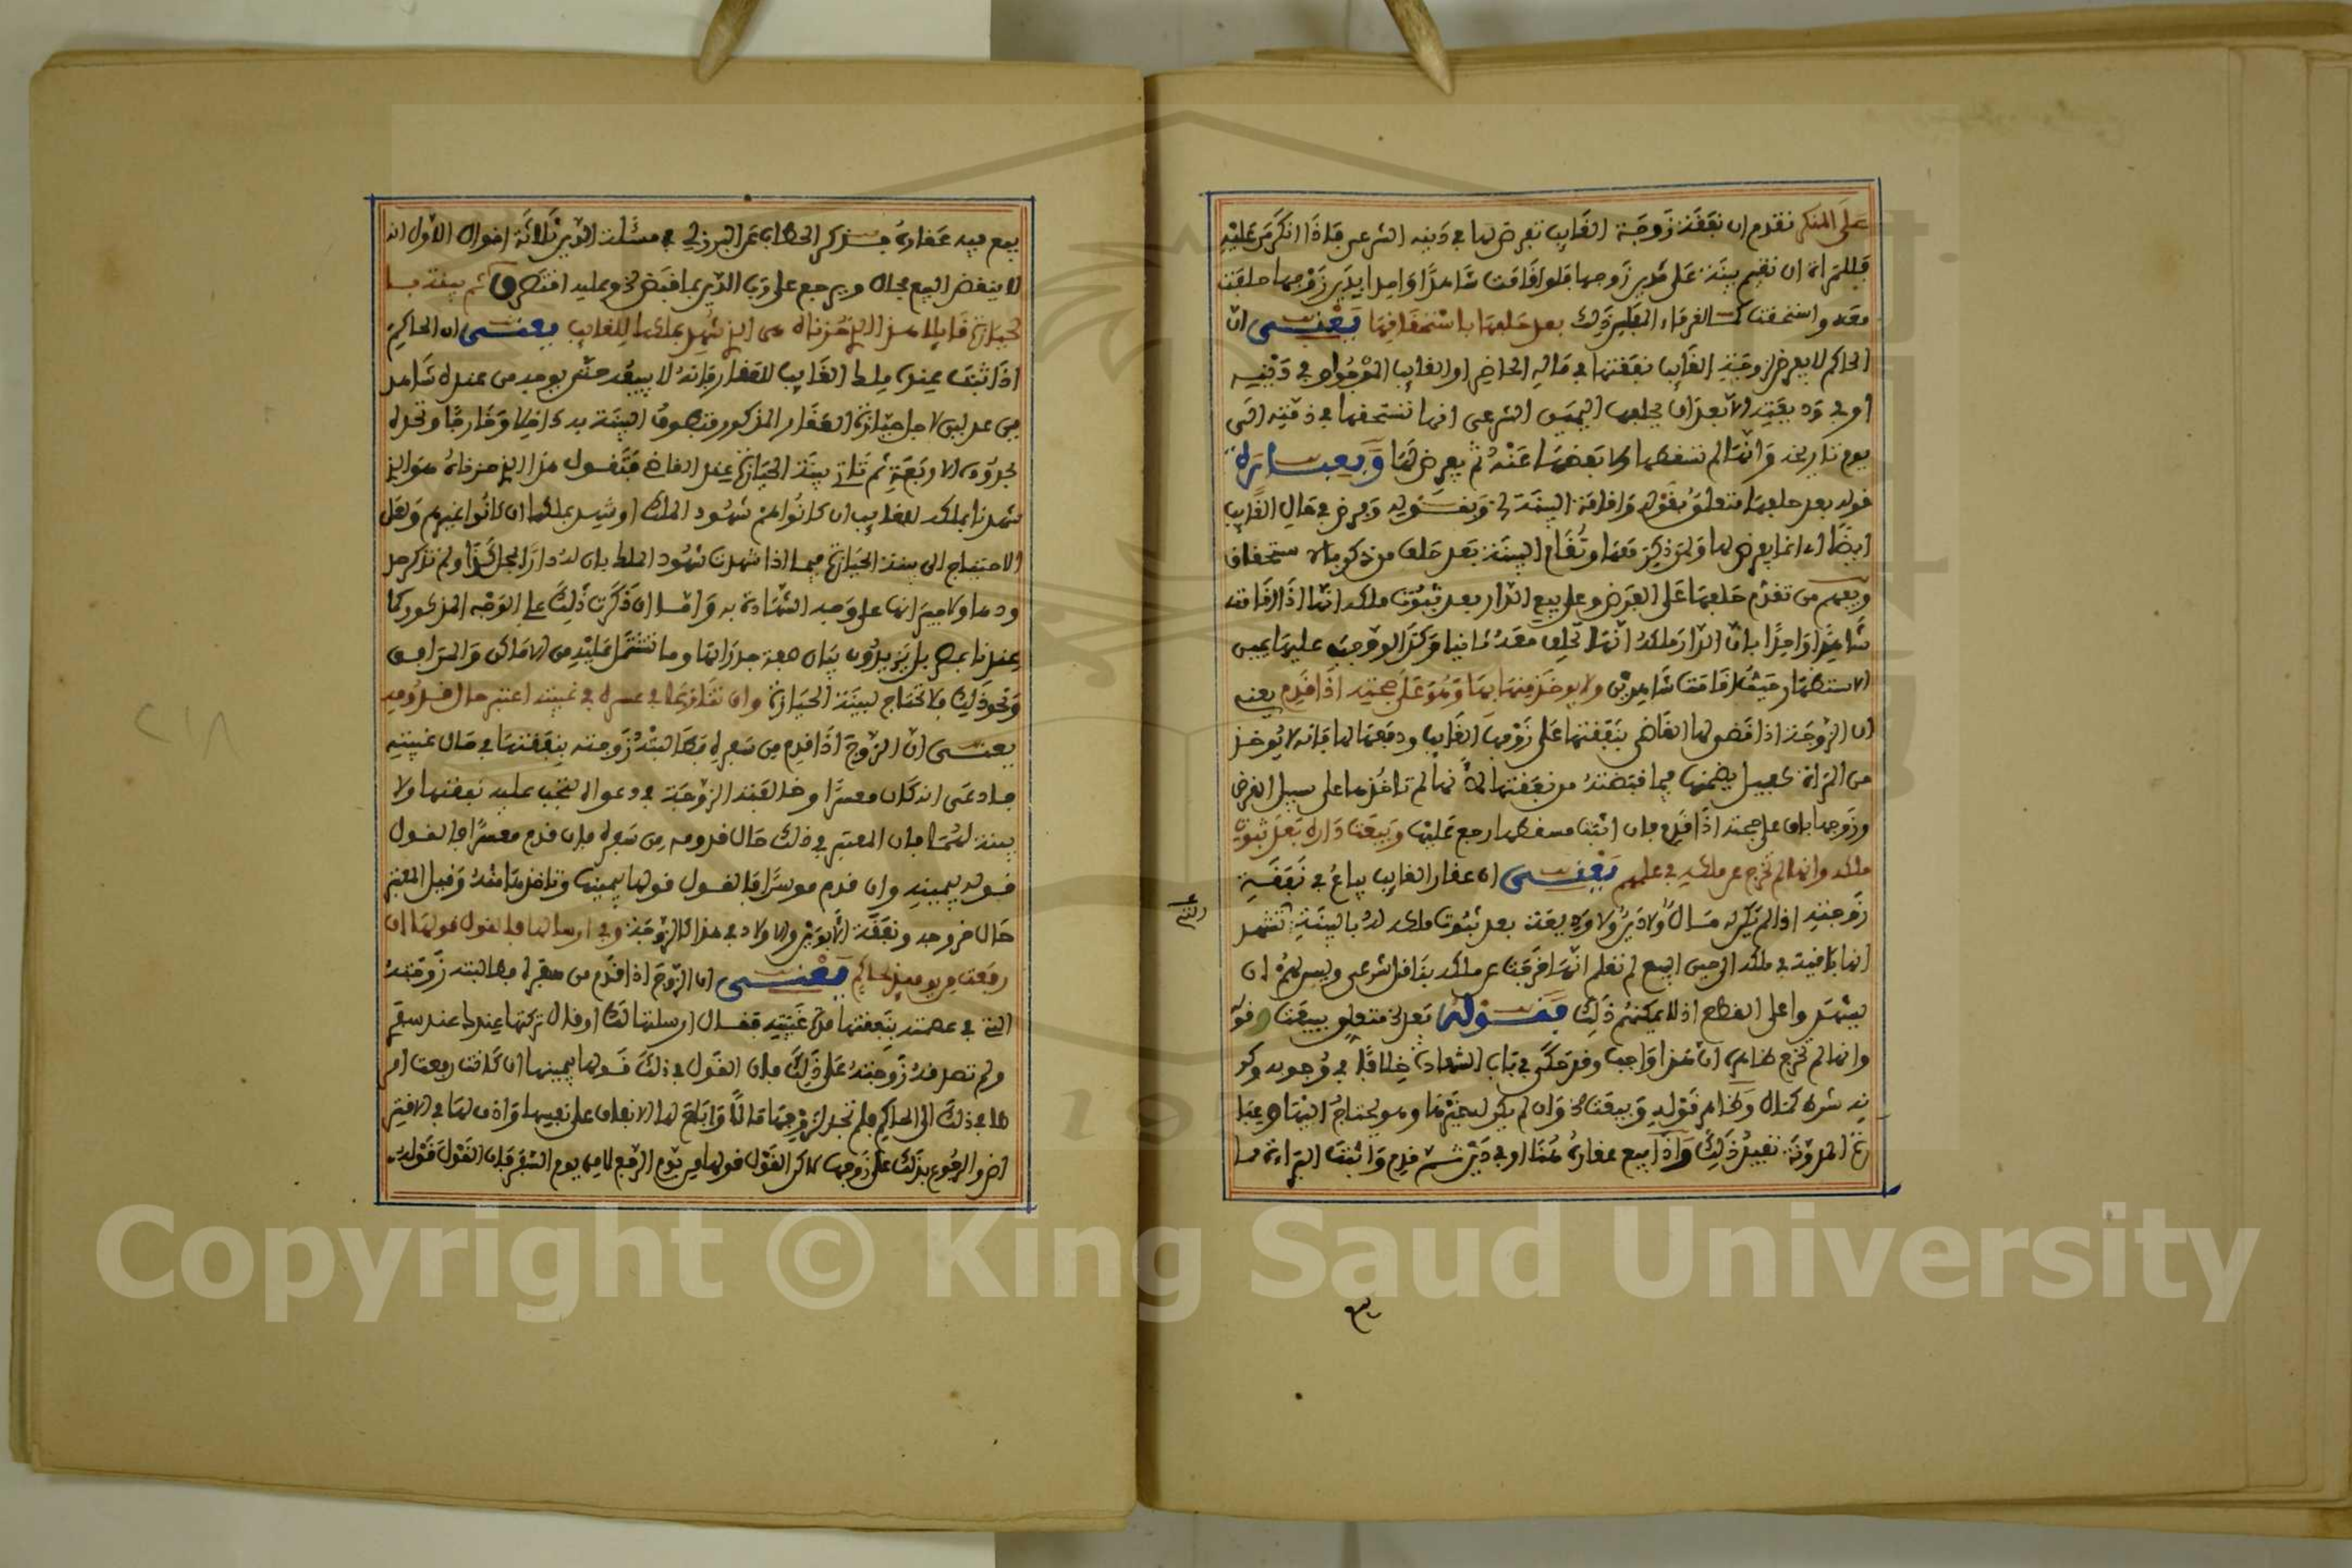 على المنكر تقدم ان نفقة زوجة الغايب تفرض لها في دينه الشرعي فاذا انكر من عليه
فللمراة ان تقيم بينة على مدين زوجها فلو اقامت شاهدا واحدا بدين زوجها حلفت
معه واستحقت الغرماء ذلك بعد حلفها باستحقاقها يعني ان
الحاكم لا يفرض لزوجة الغايب نفقتها في ماله الحاضر او الغايب او في دينه
او في وديعته الا بعد ان يحلفها اليمين الشرعي انها تستحقها في ذمته الى
يوم تاريخه وانها لم تسقطها ولا بعضها عنه ثم يفرض لها
قوله بعد حلفها متعلق بقوله واقامة البينة ويفرض في مال الغايب
ايضا اي انما يفرض لها وتقام البينة بعد حلفها من ذكر باستحقاق
تقدم حلفها على الفرض وعلى بيع الدار بعد ثبوت ملكه انها اذا اقامت
شاهدا واحدا بان الدار ملكه انها تحلف معه ثانيا عليها يمين
الاستظهار حيث اقامت شاهدين ولا يوخذ منها بها وهو على حجته اذا قدم يعني
ان الزوجة اذا قضى لها القاضي بنفقتها على زوجها الغايب ودفعها لها فانه لا يوخذ
من المراة كفيل يضمنها فيما قبضته من نفقتها لانها لم تاخذها على سبيل القرض
وزوجها باق على حجته اذا قدم فان اثبت مسقطها رجع عليها وبيعت داره بعد ثبوت
ملكه وانها لم تخرج عن ملكه في علمهم يعني ان عقار الغايب يباع في نفقة
زوجته اذا لم يكن له مال ولا دين ولا وديعة بعد ثبوت ملكه له بالبينة تشهد
انها باقية في ملكه الى حين البيع لم نعلم انها خرجت عن ملكه بناقل شرعي وليس لهم ان
يشهدوا على القطع اذ لا يمكنهم ذلك فقوله بعد متعلق ببيعت
وانها لم تخرج ظاهره ان هذا واجب وقد حكى في باب الشهادة خلافا في وجوبه وكو
نه شرط كمال وظاهر قوله وبيعت وان لم يكن له غيرها وهو يحتاج اليها وعبا
رة المدونة تفيد ذلك واذا بيع عقاره هنا او في دين ثم قدم واثبت البراءة مما
بيع فيه عقاره فذكر الحطاب عن البرزلي في مسئلة الدين ثلاثة اقوال الاول انه
لا ينقض البيع بحال ويرجع على رب الدين بما قبض وعليه اقتصر ق ثم بينة
بالحيازة قايلة هذا الذي حزناه هي التي شهد بملكها للغايب يعني ان الحاكم
اذا ثبت عنده ملك الغايب للعقار فانه لا يبيعه حتى يوجه من عنده شاهد
ين عدلين لاجل حيازة العقار المذكور فتطوف البينة به داخلا وخارجا وتحده
بحدوده الاربعة ثم تاتي بينة الحيازة عند القاضي فتقول هذا الذي حزناه هو الذي
شهدنا بملكه للغايب ان كانوا هم شهود الملك او شهد بملكها ان كانوا غيرهم ولعل
الاحتياج الى بينة الحيازة فيما اذا شهدت شهود الملك بان له دارا بمحل كذا ولم تذكر حد
ودها ولا جيرانها على وجه الشهادة به واما ان ذكرت ذلك على الوجه المذكور كما
عندنا بمصر بل يزيدون بيان صفة جدرانها وما تشتمل عليه من الاماكن والمرافق
ونحو ذلك فلا تحتاج لبينة الحيازة وان تنازعا في عسره في غيبته اعتبر حال قدومه
يعني ان الزوج اذا قدم من سفره فطالبته زوجته بنفقتها في حال غيبته
فادعى انه كان معسرا وخالفته الزوجة في دعواه لتجب عليه نفقتها ولا
بينة لهما فان المعتبر في ذلك حال قدومه من سفره فان قدم معسرا فالقول
قوله بيمينه وان قدم موسرا فالقول قولها بيمينها وتاخذها منه وقيل المعتبر
حال خروجه ونفقة الابوين والاولاد في هذا كالزوجة وفي ارسالها فالقول قولها ان
رفعت من يوميذ لحاكم يعني ان الزوج اذا قدم من سفره فطالبته زوجته
التي في عصمته بنفقتها مدة غيبته فقال ارسلتها لك او قال تركتها عندك عند سفري
ولم تصدقه زوجته على ذلك فان القول في ذلك قولها بيمينها ان كانت رفعت امر
ها في ذلك الى الحاكم فلم تجد لزوجها مالا واباح لها الانفاق على نفسها واذن لها في الاقتر
اض والرجوع بذلك على زوجها لاكن القول قولها من يوم الرفع لا من يوم السفر فان القول قوله
٢١٨
Copyright © King Saud University